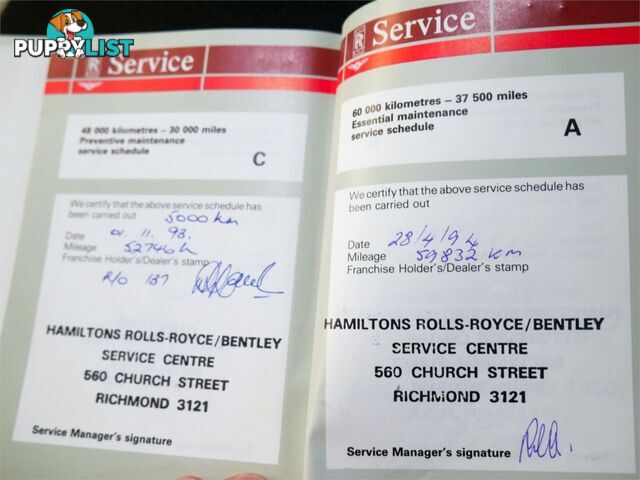 PUPPYLIST
Service
48 000 kilometres – 30 000 miles
Preventive maintenance
service schedule
C
We certify that the above service schedule has
been carried out 5000 km
Date 01. 11. 93.
Mileage 52746 k
Franchise Holder's/Dealer's stamp
R/O 137
HAMILTONS ROLLS-ROYCE/BENTLEY
SERVICE CENTRE
560 CHURCH STREET
RICHMOND 3121
Service Manager's signature
Service
60 000 kilometres – 37 500 miles
Essential maintenance
service schedule
A
We certify that the above service schedule has
been carried out
Date 28/4/94
Mileage 59832 KM
Franchise Holder's/Dealer's stamp
HAMILTONS ROLLS-ROYCE/BENTLEY
SERVICE CENTRE
560 CHURCH STREET
RICHMOND 3121
Service Manager's signature